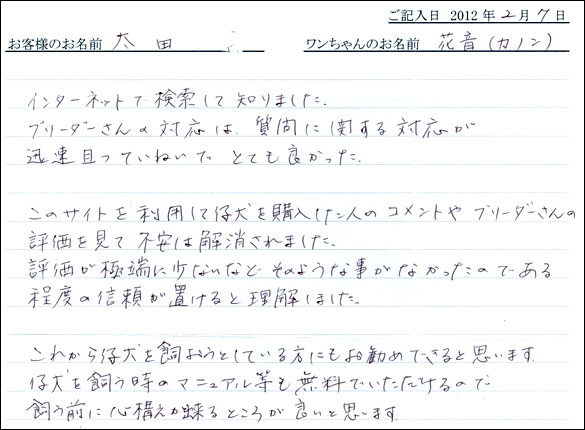 ご記入日 2012年2月7日
お客様のお名前 太田 ワンちゃんのお名前 花音(カノン)
インターネットで検索して知りました.
ブリーダーさんの対応は、質問に関する対応が
迅速且っていねいで とても良かった.
このサイトを利用して仔犬を購入した人のコメントや ブリーダーさんの
評価を見て 不安は解消されました.
評価が極端に少ないなど そのような事がなかったのである
程度の信頼が置けると理解しました.
これから仔犬を飼おうとしている方にもお勧めできると思います.
仔犬を飼う時のマニュアル等も無料でいただけるので
飼う前に心構えが
るところが良いと思います.